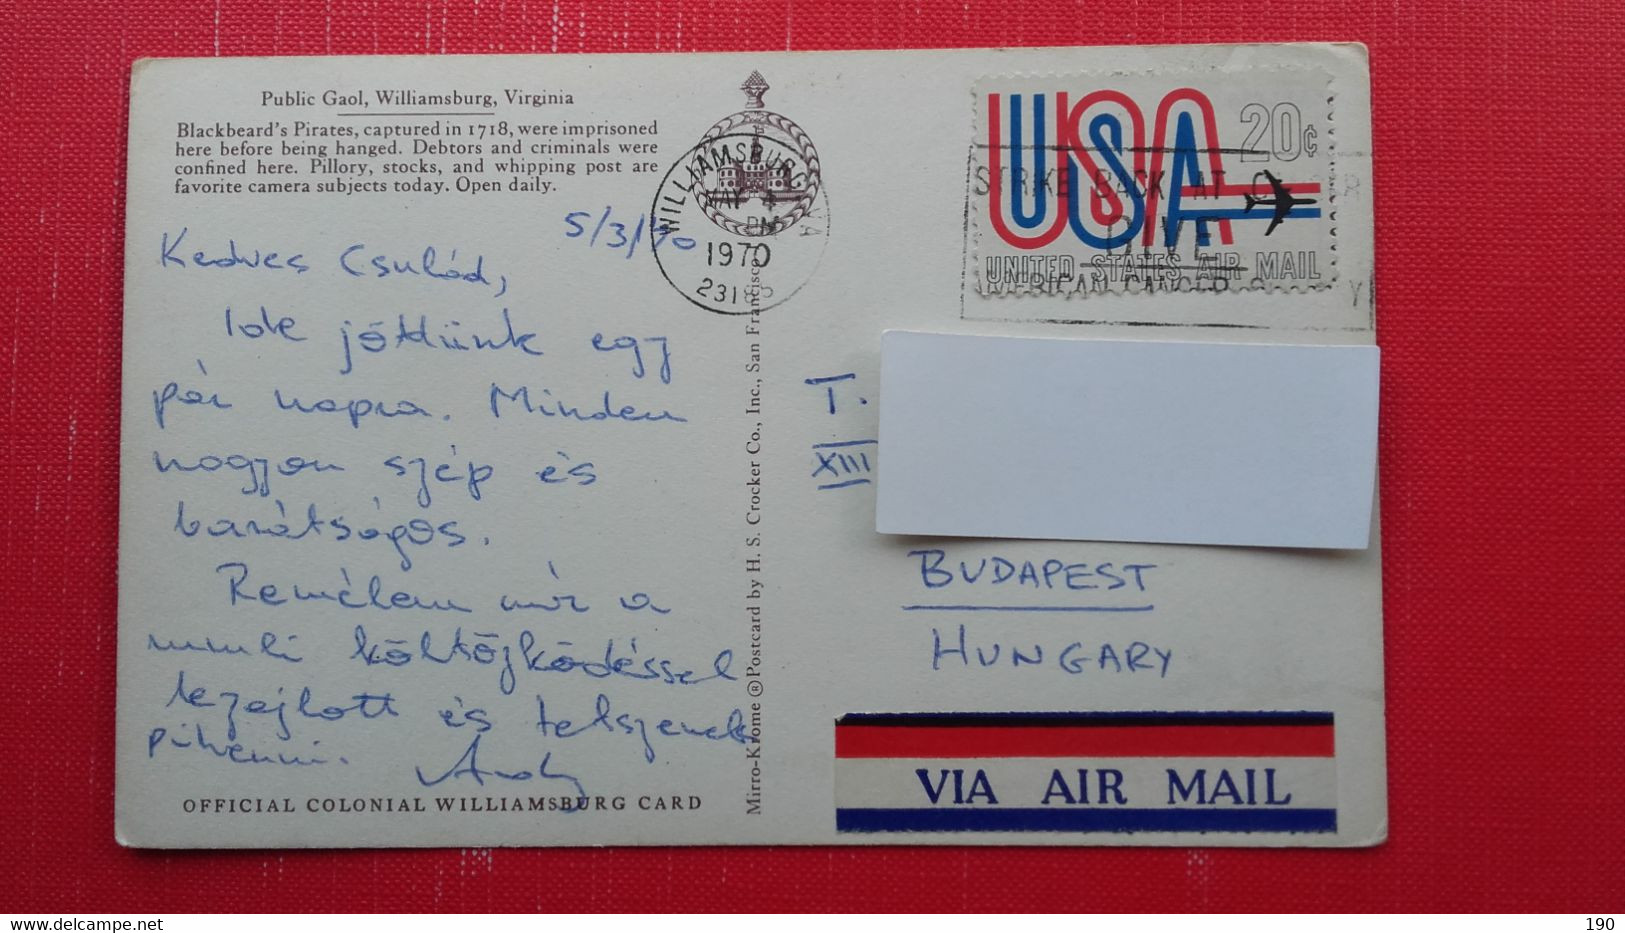 Public Gaol, Williamsburg, Virginia
Blackbeard's Pirates, captured in 1718, were imprisoned
here before being hanged. Debtors and criminals were
confined here. Pillory, stocks, and whipping post are
favorite camera subjects today. Open daily.
5/3/70
Kedves Család,
Ide jöttünk egy
pár napra. Minden
nagyon szép és
barátságos.
Remélem már a
multi költözködéssel
lezajlott és tetszenek
pihenni. Andy
OFFICIAL COLONIAL WILLIAMSBURG CARD
Mirro-Krome ® Postcard by H. S. Crocker Co., Inc., San Francisco
WILLIAMSBURG, VA
MAY 4
PM
1970
231
USA 20¢
UNITED STATES AIR MAIL
STRIKE BACK AT
GIVE
AMERICAN CANCER
T.
XIII
BUDAPEST
HUNGARY
VIA AIR MAIL
190